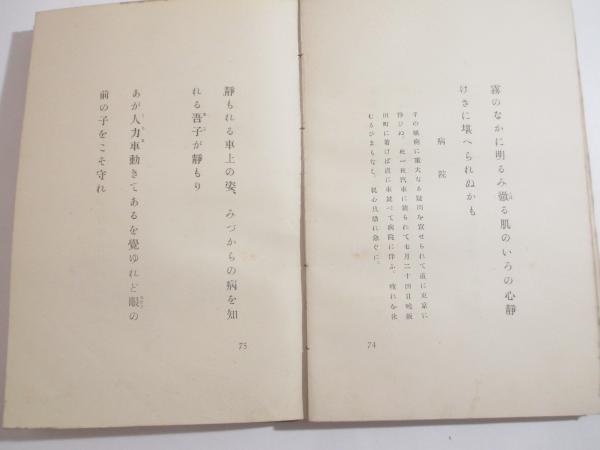 霧のなかに明るみ徹る肌のいろの心靜
けさに堪へられぬかも
病院
子の眼病に重大なる疑問を宣せられて直に東京に
伴ひぬ。一夜汽車に揺られて七月二十四日曉飯
田町に着けば直に車並べて病院に伴ふ。疲れを休
むるひまもなし。親心只獨れ急ぐに。
74
靜もれる車上の姿、みづからの病を知
れる吾子が靜もり
あが人力車動きてあるを覺ゆれど眼の
前の子をこそ守れ
75